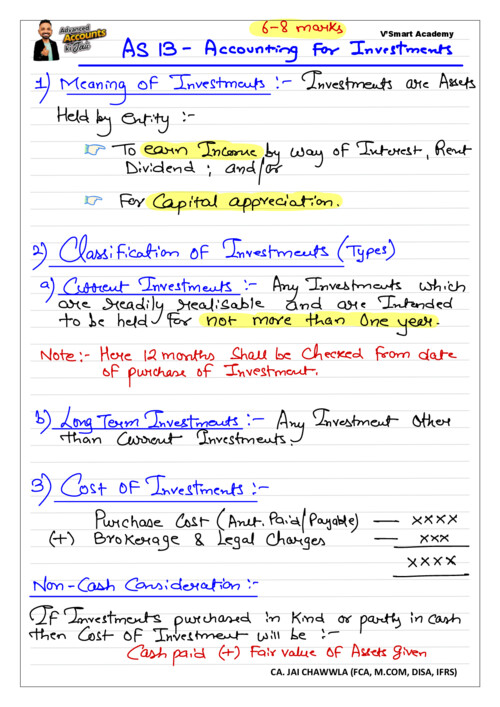 6-8 marks
V'Smart Academy
Advanced
Accounts
ki Jaii
AS 13 - Accounting For Investments
1) Meaning of Investments :- Investments are Assets
Held by Entity :-
To earn Income by way of Interest, Rent
Dividend ; and/or
For Capital appreciation.
2) Classification of Investments (Types)
a) Current Investments :- Any Investments which
are readily realisable and are Intended
to be held for not more than One year.
Note:- Here 12 months Shall be Checked from date
of purchase of Investment.
b) Long Term Investments :- Any Investment Other
than Current Investments.
3) Cost of Investments :-
Purchase Cost (Amt. Paid/Payable) — xxxx
(+) Brokerage & Legal Charges — xxx
xxxx
Non-Cash Consideration :-
If Investments purchased in Kind or partly in cash
then Cost of Investment will be :-
Cash paid (+) Fair value of Assets given
CA. JAI CHAWWLA (FCA, M.COM, DISA, IFRS)